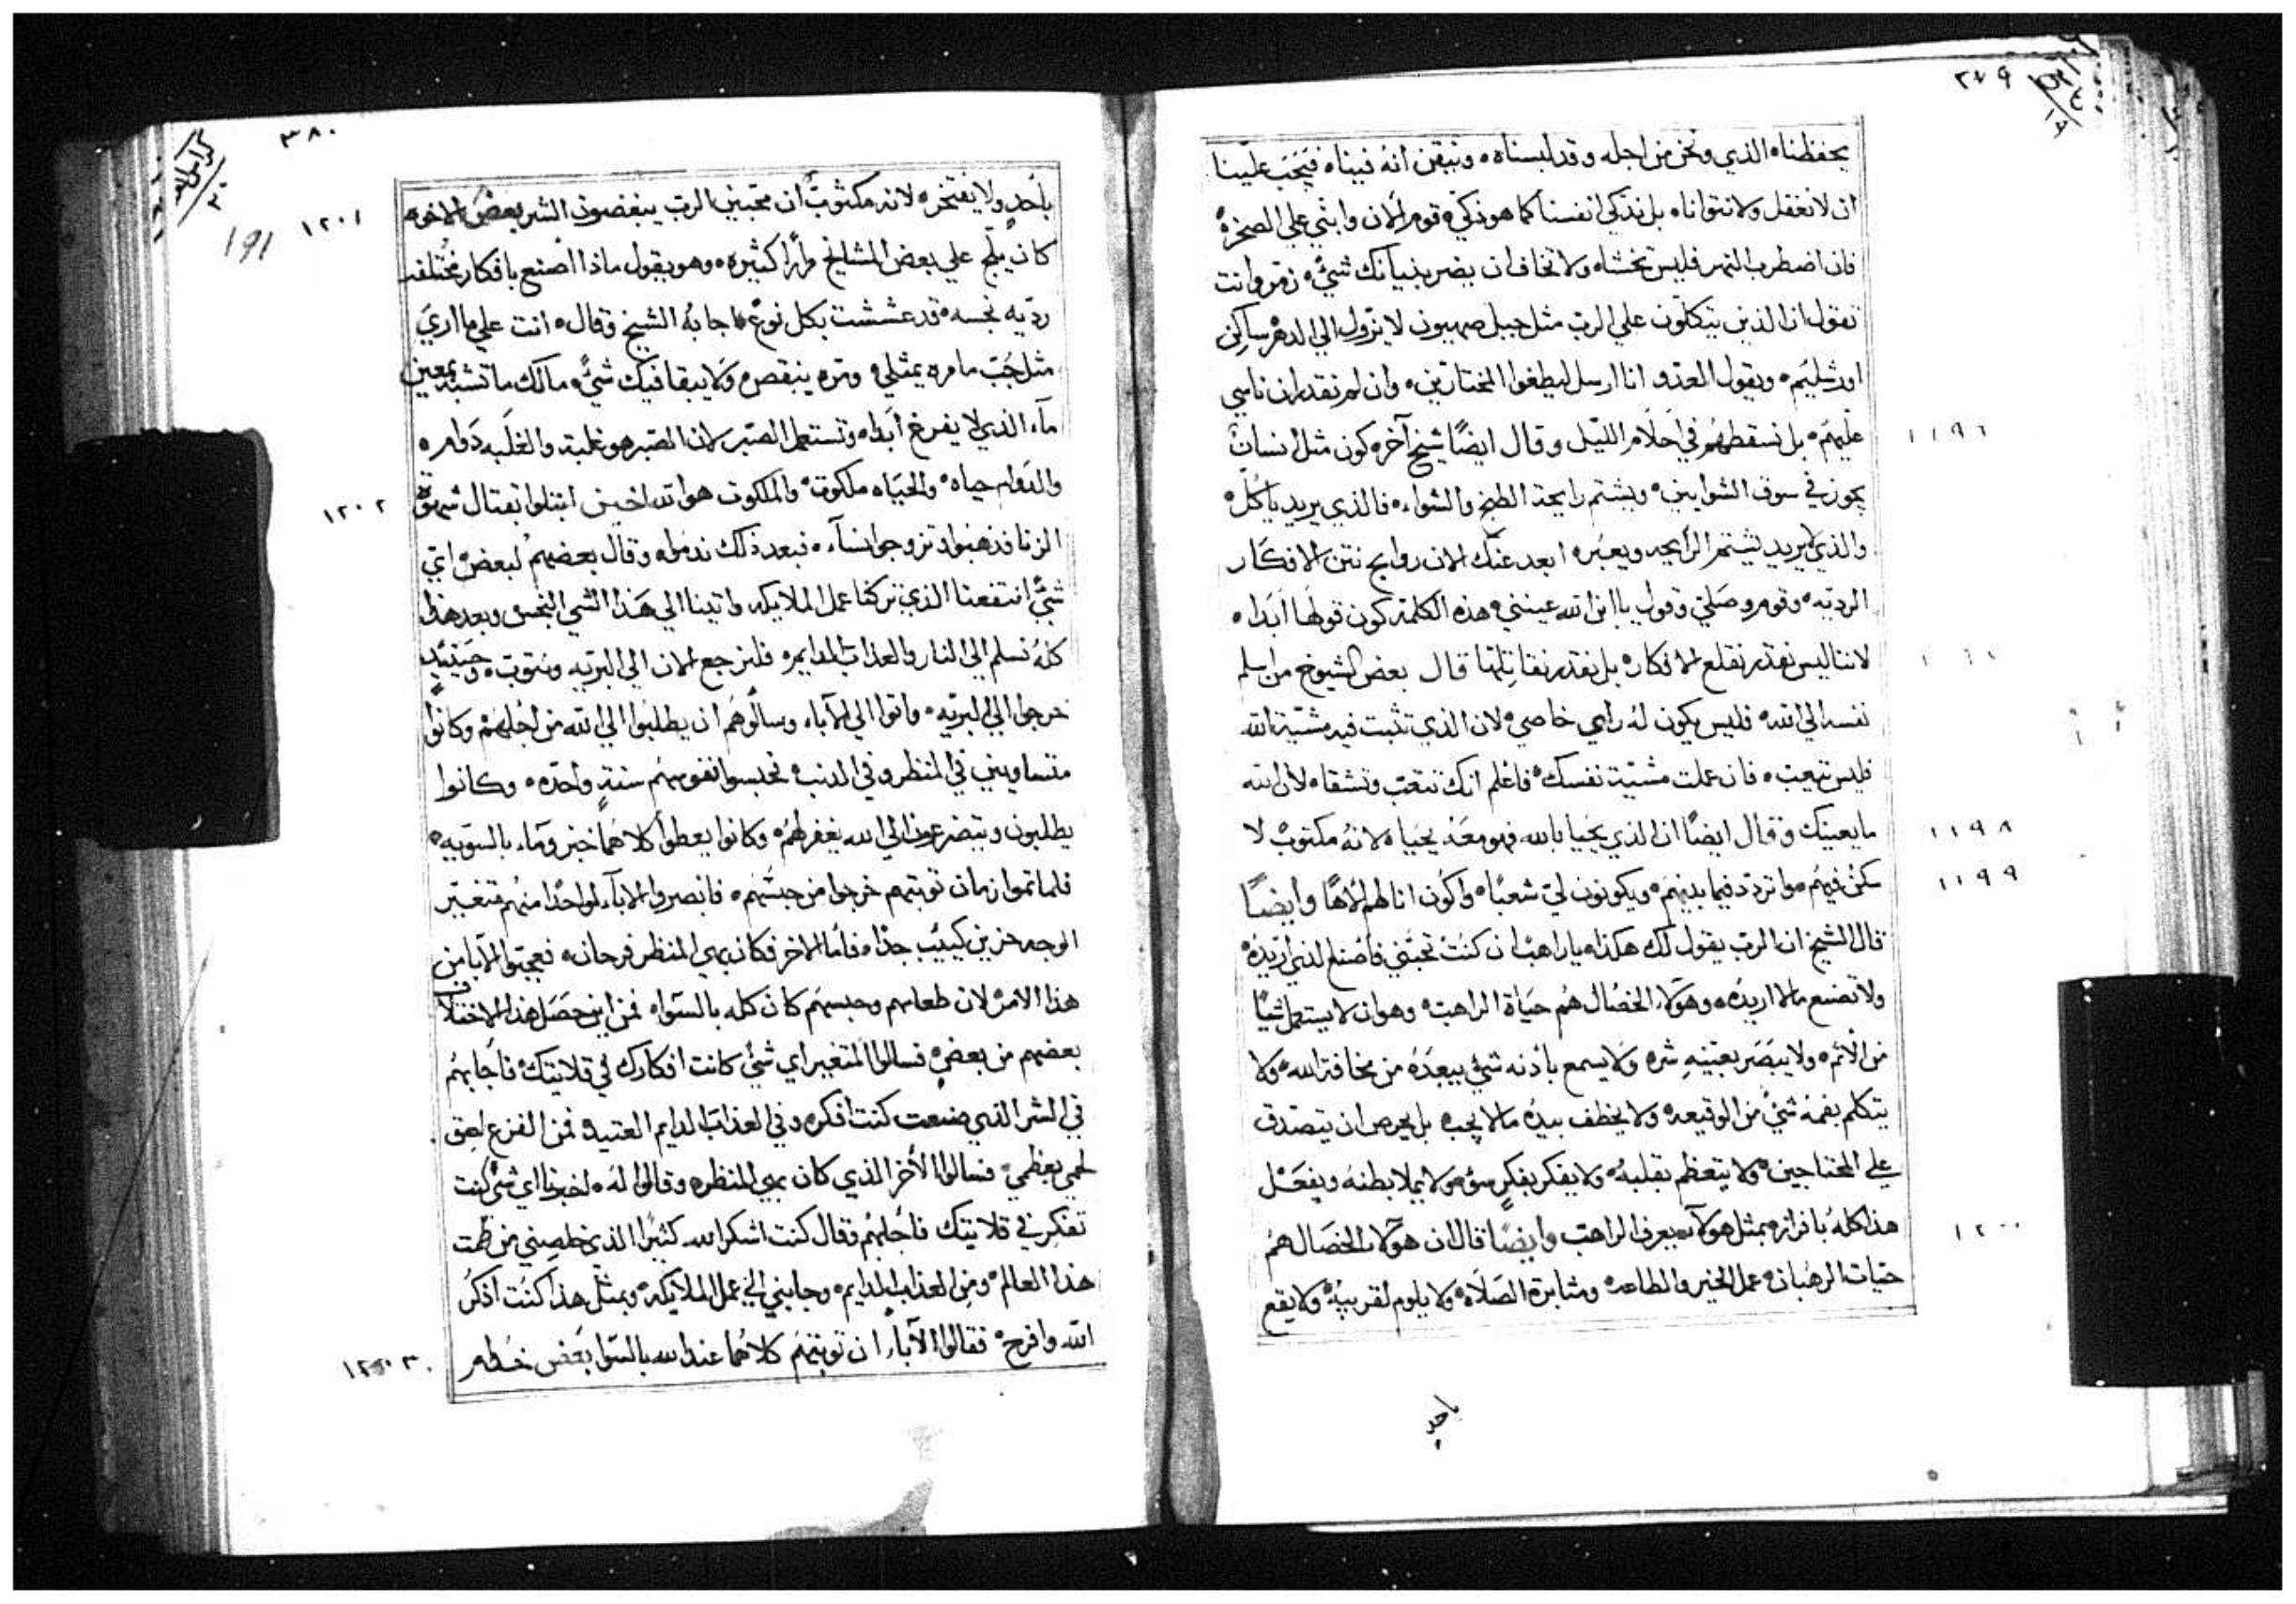 ٣٧٩
يحفظناه الذي ونحن من اجله وقد لبسناه ونتيقن انه فيناه فيجب علينا
ان لا نغفل ولا نتواناه بل نذكي انفسنا كما هو ذكيه قوم الان وابني علي الصخرة
فان اضطرب النهر فليس تخشاه ولا تخاف ان يضر بنيانك شيء زمر وانت
تقول ان الذين يتكلون علي الرب مثل جبل صهيون لا يزول الي الدهر ساكن
اورشليم ويقول العدو انا ارسل ليطغوا المختارين وان لم نقدر ان ناسي
عليهم بل نسقطهم في احلام الليل وقال ايضًا شيخ آخره كون مثل انسان
١١٩٦
يجوز في سوق الشوايين ويشتم رايحة الطبخ والشواء فالذي يريد ياكل
والذي لا يريد يشتم الرايحه ويعبره ابعد عنك الان روايح نتن الافكار
الرديه وقوم وصلي وقول يا ابن الله عينني هذه الكلمة كون قولها ابدا
لاننا ليس نقدر نقلع الافكار بل نقدر نقاتلها قال بعض الشيوخ من اسلم
نفسه الي الله فليس يكون له راي خاصي لان الذي تثبت فيه مشيئة الله
فليس تتعب فان عملت مشيئة نفسك فاعلم انك تتعب وتشقاه لان الله
ما يعينك وقال ايضًا ان الذي يحيا بالله فهو معه يحياه لانه مكتوب لا
١١٩٨
سكن فيهم واتردد فيما بينهم ويكونون لي شعبًا واكون انا لهم الاهًا وايضًا
١١٩٩
قال الشيخ ان الرب يقول لك هكذاه يا راهب ان كنت تحبني فاصنع الذي اريده
ولا تصنع ما لا اريده وهولاء الخصال هم حياة الراهب وهو ان لا يستعمل شيًا
من الاثم ولا يبصر بعينيه شره ولا يسمع باذنه شيء يبعده من مخافة الله ولا
يتكلم بفمه شيء من الوقيعه ولا يخطف بيده ما لا يجب بل يحرص ان يتصدق
علي المحتاجين ولا يتعظم بقلبه ولا يفكر بفكر سوء ولا يملا بطنه ويفعل
هذا كله بافراز بمثل هولاء يعرف الراهب وايضًا قال ان هولاء الخصال هم
١٢٠٠
حيات الرهبان عمل الخير والطاعه ومثابرة الصلاه ولا يلوم لقريبه ولا يقع
باحد
٣٨٠
باحد ولا يفتخره لانه مكتوب ان محبين الرب يبغضون الشر بعض الاخوه
١٢٠١
191
كان يلج علي بعض المشايخ مرارًا كثيره وهو يقول ماذا اصنع بافكار مختلفه
رديه نجسه قد عششت بكل نوع فاجابه الشيخ وقال انت علي ما اري
مثل جب ما مره يمتلي ومره ينقص ولا يبقا فيك شيء مالك ما تشبه بمعين
مآء الذي لا يفرغ ابداه وتستعمل الصبر لان الصبر هو غلبه والغلبه دوام
والدوام حياه والحياه ملكوت والملكوت هو الله اخين ابتلوا بقتال شهوة
١٢٠٢
الزنا فذهبوا وتزوجوا نسآء فبعد ذلك ندمواه وقال بعضهم لبعض اي
شيء انتفعنا الذي تركنا عمل الملايكه واتينا الي هذا الشي النجس وبعد هذا
كله نسلم الي النار والعذاب الدايم فلنرجع الان الي البريه ونتوب وحينئذ
خرجوا الي البريه واتوا الي الآباء وسالوهم ان يطلبوا الي الله من اجلهم وكانوا
متساويين في المنظر وفي الذنب فحبسوا نفوسهم سنة واحده وكانوا
يطلبون ويتضرعون الي الله يغفر لهم وكانوا يعطوا كلاهما خبز ومآء بالسويه
فلما تموا زمان توبتهم خرجوا من حبسهم فابصروا الابآء لواحدًا منهم متغير
الوجه حزين كييب جداه فاما الاخر فكان بهي المنظر فرحان فعجبوا الآبا من
هذا الامر لان طعامهم وحبسهم كان كله بالسواء فمن اين حصل هذا الاختلاف
بعضهم من بعض فسالوا المتغير اي شيء كانت افكارك في قلايتك فاجابهم
في الشر الذي صنعت كنت افكره وفي العذاب الدايم العتيد فمن الفزع لصق
لحمي بعظمي فسالوا الاخر الذي كان بهي المنظره وقالوا له اخبرنا اي شيء كنت
تفكر في قلايتك فاجابهم وقال كنت اشكر الله كثيرًا الذي خلصني من ظلمت
هذا العالم ومن العذاب الدايم وجابني الي عمل الملايكه وبمثل هذا كنت اذكر
الله وافرح فقالوا الآباء ان توبتهم كلاهما عند الله بالسوا بعض
١٢٠٣